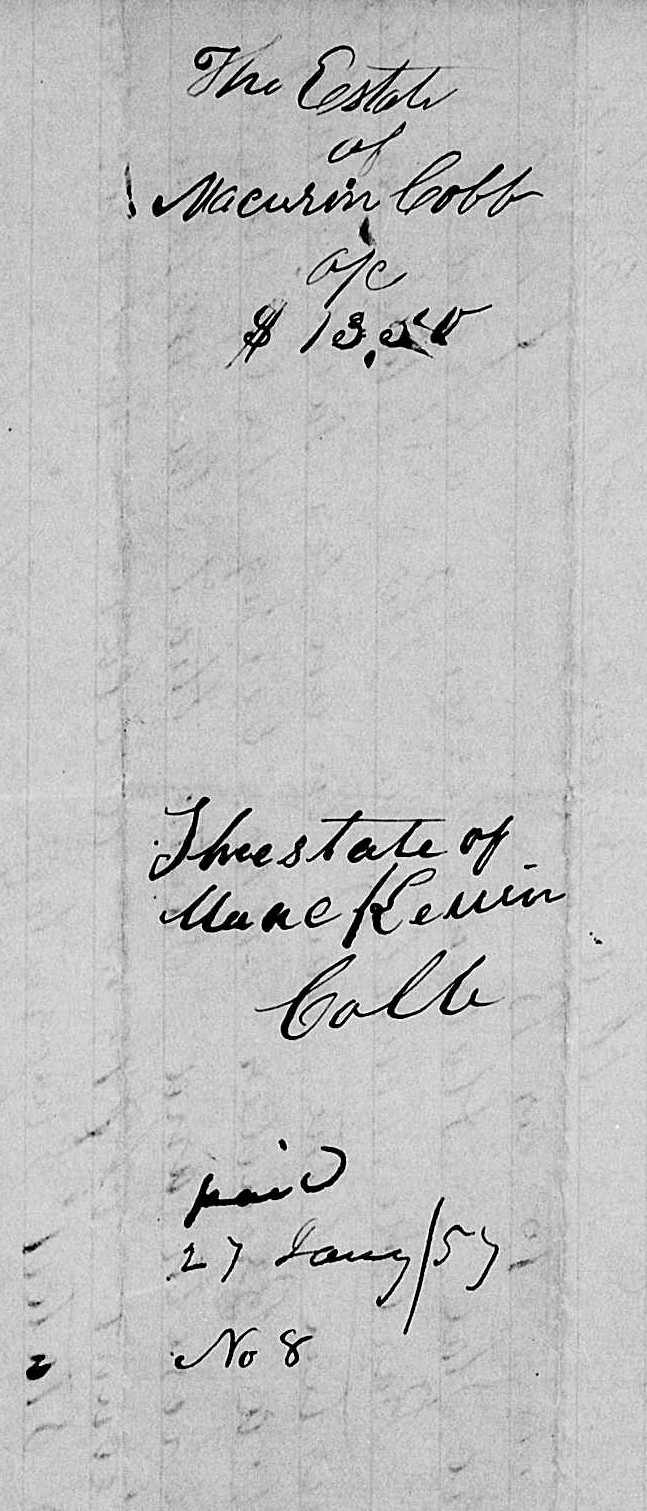 The Estate
of
Macurin Cobb
a/c
$ 13.50
The estate of
Mac Kerrin
Cobb
paid
27 Jany/57
No 8